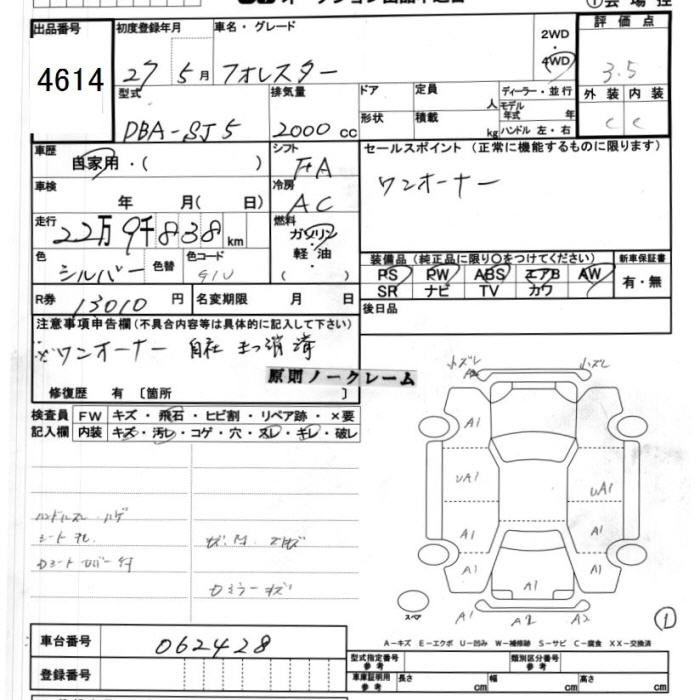 出品番号 初度登録年月 車名・グレード 評価点
4614 27 5月 フォレスター 2WD・4WD 3.5
型式 排気量 ドア 定員 人 ディーラー・並行 外装 内装
DBA-SJ5 2000 cc 形状 積載 kg モデル年式 年 C C
ハンドル 左・右
車歴 自家用・( ) シフト FA セールスポイント (正常に機能するものに限ります)
車検 年 月( 日) 冷房 AC ワンオーナー
走行 22万9千838 km 燃料 ガソリン・軽油・( )
色 シルバー 色替 色コード G1U 装備品 (純正品に限り○をつけてください) 新車保証書
PS PW ABS エアB AW 有・無
SR ナビ TV カワ
R券 13010 円 名変期限 月 日 後日品
注意事項申告欄 (不具合内容等は具体的に記入して下さい)
※ワンオーナー 自社
原則ノークレーム
修復歴 有 〔箇所 〕
検査員 FW キズ・飛石・ヒビ割・リペア跡・×要
記入欄 内装 キズ・汚レ・コゲ・穴・スレ・キレ・破レ
小ズレ 小ズレ
A1 A1
UA1 UA1
A1 A1
A1 A1 A1
A1 A2 A2
スペア
1
車台番号 062428
A-キズ E-エクボ U-凹み W-補修跡 S-サビ C-腐食 XX-交換済
登録番号 型式指定番号 参考 類別区分番号 参考
車庫証明用 参考 長さ cm 幅 cm 高さ cm